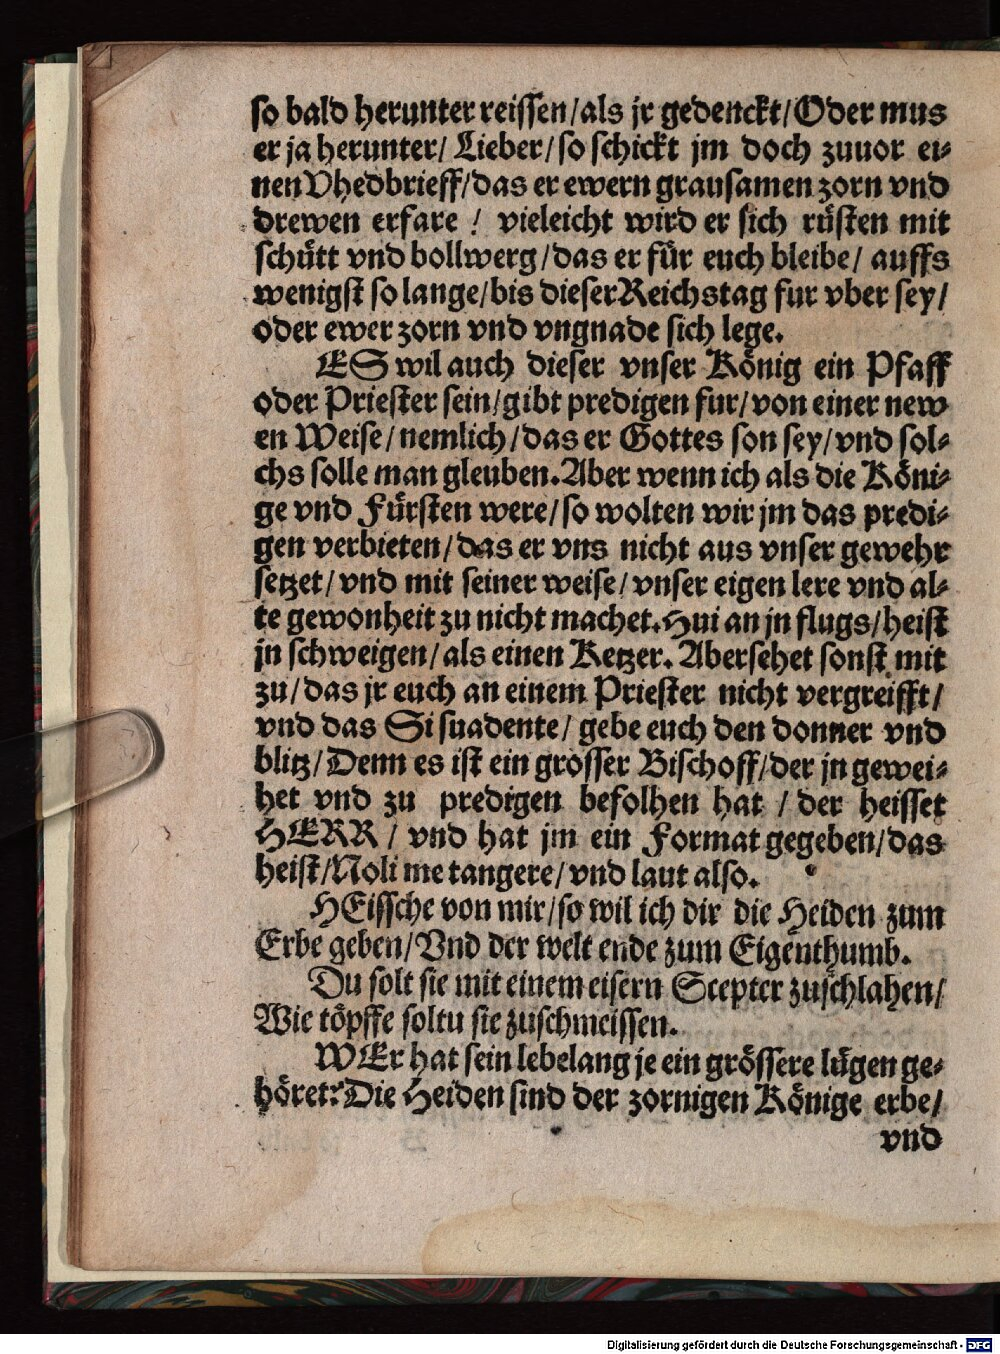 so bald herunter reissen/als jr gedenckt/Oder mus
er ja herunter/ Lieber/so schickt jm doch zuuor ei-
nen Vhedbrieff/das er ewern grausamen zorn vnd
drewen erfare / vieleicht wird er sich rüsten mit
schütt vnd bollwerg/das er für euch bleibe/ auffs
wenigst so lange/bis dieser Reichstag fur vber sey/
oder ewer zorn vnd vngnade sich lege.
ES wil auch dieser vnser König ein Pfaff
oder Priester sein/gibt predigen fur/von einer new
en Weise/nemlich/das er Gottes son sey/vnd sol-
chs solle man gleuben.Aber wenn ich als die Köni-
ge vnd Fürsten were/so wolten wir jm das predi-
gen verbieten/das er vns nicht aus vnser gewehr
setzet/vnd mit seiner weise/vnser eigen lere vnd al-
te gewonheit zu nicht machet.Hui an jn flugs/heist
jn schweigen/als einen Ketzer. Aber sehet sonst mit
zu/das jr euch an einem Priester nicht vergreifft/
vnd das Si suadente/ gebe euch den donner vnd
blitz/Denn es ist ein grosser Bischoff/der jn gewei-
het vnd zu predigen befolhen hat / der heisset
HERR/ vnd hat jm ein Format gegeben/das
heist/Noli me tangere/vnd laut also.
HEissche von mir/so wil ich dir die Heiden zum
Erbe geben/Vnd der welt ende zum Eigenthumb.
Du solt sie mit einem eisern Scepter zuschlahen/
Wie töpffe soltu sie zuschmeissen.
WEr hat sein lebelang je ein grössere lügen ge-
höret?Die Heiden sind der zornigen Könige erbe/
vnd
Digitalisierung gefördert durch die Deutsche Forschungsgemeinschaft - DFG